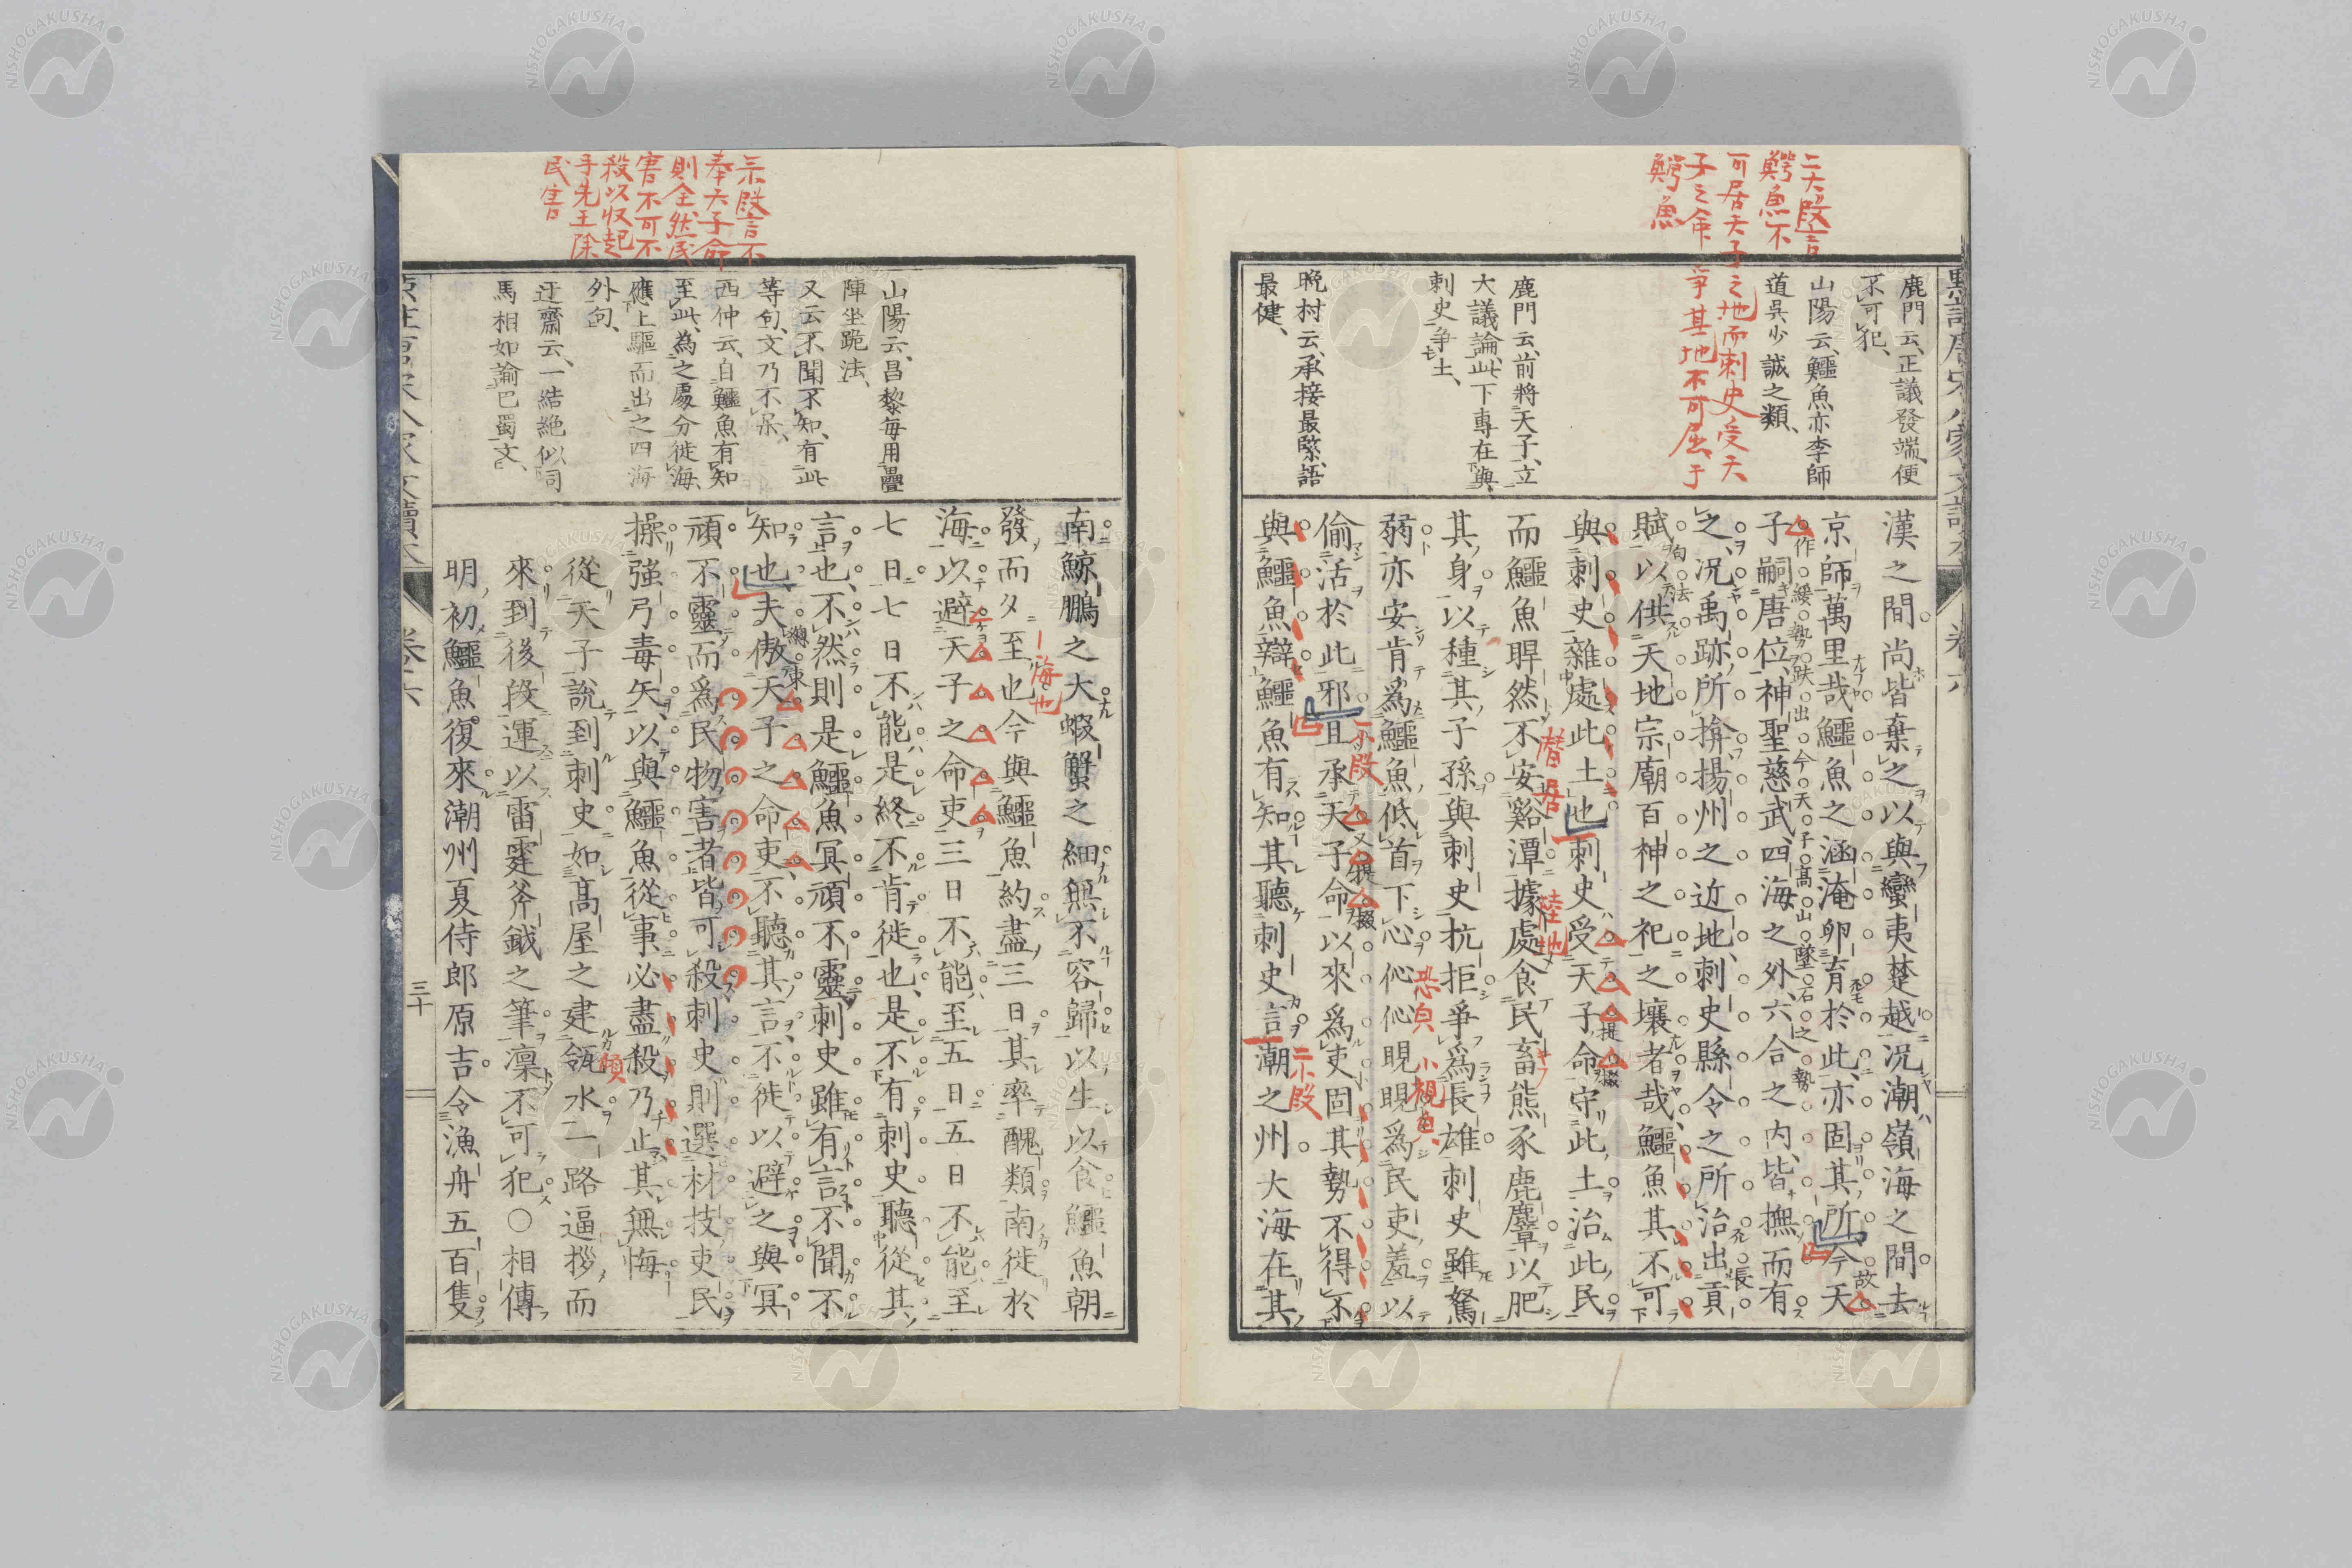 二大段言
鰐魚不
可居天子之地而刺史受天
子之命爭其地不可屈于
鰐魚
鹿門云、正議發端、便
不可犯、
山陽云、鱷魚亦李師
道吳少誠之類、
鹿門云、前將天子、立
大議論、此下專在與
刺史爭土、
晩村云、承接最緊、語
最健、
漢之間尚皆棄之以與蠻夷楚越況潮嶺海之間去
京師萬里哉鱷魚之涵淹卵育於此亦固其所今天
子嗣唐位神聖慈武四海之外六合之內皆撫而有
之況禹跡所揜揚州之近地刺史縣令之所治出貢
賦以供天地宗廟百神之祀之壤者哉鱷魚其不可
與刺史雜處此土也刺史受天子命守此土治此民
而鱷魚睅然不安谿潭據處食民畜熊豕鹿麞以肥
其身以種其子孫與刺史抗拒爭爲長雄刺史雖駑
弱亦安肯爲鱷魚低首下心伈伈睍睍爲民吏羞以
偷活於此邪且承天子命以來爲吏固其勢不得不
與鱷魚辯鱷魚有知其聽刺史言潮之州大海在其
卷六
潛居
陸地
恐皃
小視皃
一小段
二小段
示段言不
奉天子命
則全然民
害不可不
殺以收起
手先王除
民害
山陽云、昌黎每用疊
陣坐跪法、
又云、不聞不知、有此
等句、文乃不呆、
西仲云、自鱷魚有知
至此、爲之處分徙海、
應上驅而出之四海
外句、
迂齋云、一結絕似司
馬相如諭巴蜀文、
南鯨鵬之大蝦蟹之細無不容歸以生以食鱷魚朝
發而夕至也今與鱷魚約盡三日其率醜類南徙於
海以避天子之命吏三日不能至五日五日不能至
七日七日不能是終不肯徙也是不有刺史聽從其
言也不然則是鱷魚冥頑不靈刺史雖有言不聞不
知也夫傲天子之命吏不聽其言不徙以避之與冥
頑不靈而爲民物害者皆可殺刺史則選材技吏民
操強弓毒矢以與鱷魚從事必盡殺乃止其無悔
從天子說到刺史如高屋之建瓴水一路逼拶而
來到後段運以雷霆斧鉞之筆凜不可犯○相傳
明初鱷魚復來潮州夏侍郎原吉令漁舟五百隻
海也
卷六
三十